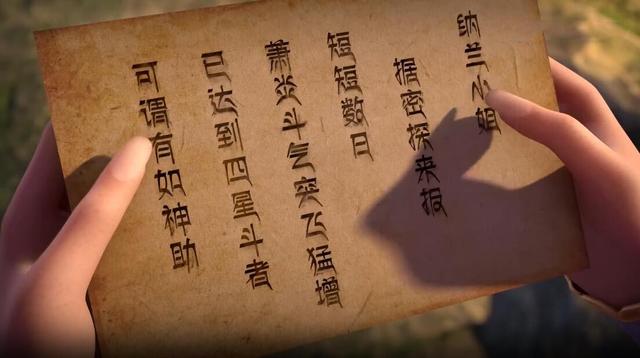 纳兰小姐
据密探来报
短短数日
萧炎斗气突飞猛增
已达到四星斗者
可谓有如神助